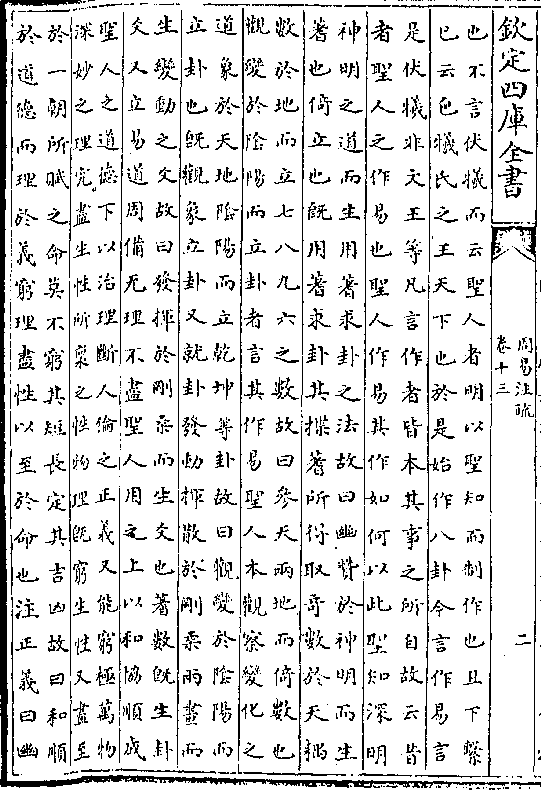 欽定四庫全書
周易注疏
卷十三
二
也不言伏犧而云聖人者明以聖知而制作也且下繫
已云包犧氏之王天下也於是始作八卦今言作易言
是伏犧非文王等凡言作者皆本其事之所自故云昔
者聖人之作易也聖人作易其作如何以此聖知深明
神明之道而生用蓍求卦之法故曰幽贊於神明而生
蓍也倚立也既用蓍求卦其揲蓍所得取竒數於天耦
數於地而立七八九六之數故曰參天兩地而倚數也
觀變於陰陽而立卦者言其作易聖人本觀察變化之
道象於天地陰陽而立乾坤等卦故曰觀變於陰陽而
立卦也既觀象立卦又就卦發動揮散於剛柔兩畫而
生變動之爻故曰發揮於剛柔而生爻也蓍數既生卦
爻又立易道周備无理不盡聖人用之上以和協順成
聖人之道德下以治理斷人倫之正義又能窮極萬物
深妙之理究盡生性所禀之性物理既窮生性又盡至
於一朝所賦之命莫不窮其短長定其吉凶故曰和順
於道德而理於義窮理盡性以至於命也注正義曰幽